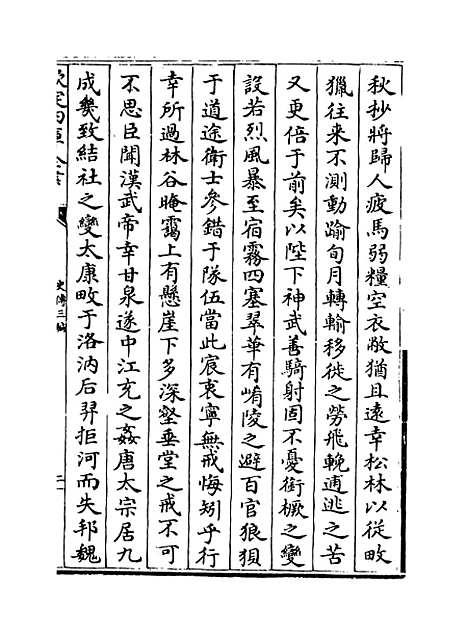 秋抄將歸人疲馬弱糧空衣敝猶且遠幸松林以從畋
獵往來不測動踰旬月轉輸移徙之勞飛輓逋逃之苦
又更倍于前矣以陛下神武善騎射固不憂銜橛之變
設若烈風暴至宿霧四塞翠華有崤陵之避百官狼狽
于道途衛士參錯于隊伍當此宸衷寧無戒悔矧乎行
幸所過林谷晻靄上有懸崖下多深壑垂堂之戒不可
不思臣聞漢武帝幸甘泉遂中江充之姦唐太宗居九
成幾致結社之變太康畋于洛汭后羿拒河而失邦魏
欽定四庫全書
史傳三編